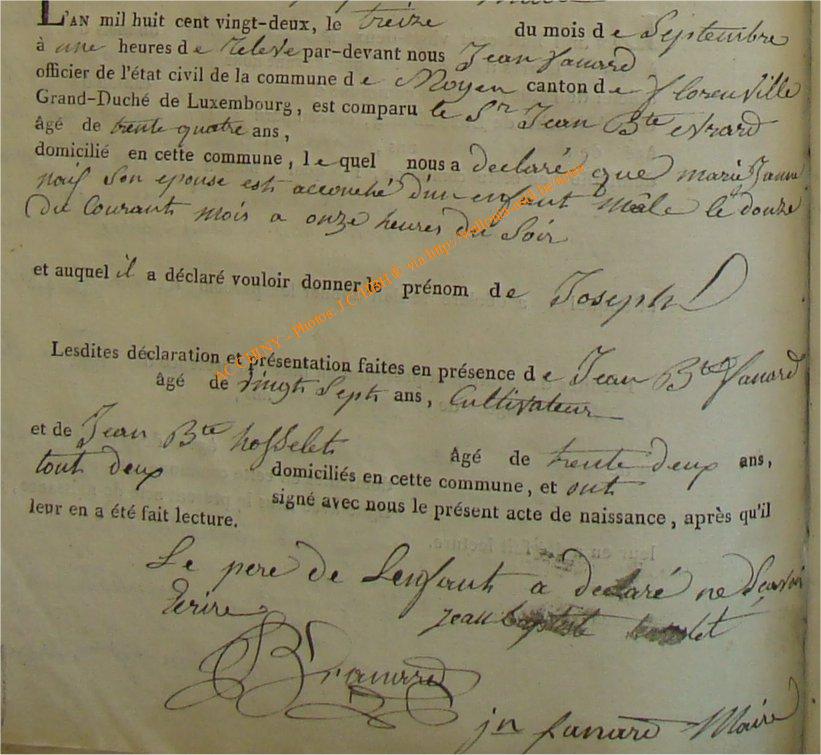 L'AN mil huit cent vingt-deux, le treize du mois de Septembre
à une heures de relevé par-devant nous Jean fanard
officier de l'état civil de la commune de Moyen canton de florenville
Grand-Duché de Luxembourg, est comparu le Sr Jean Bte evrard
âgé de trente quatre ans,
domicilié en cette commune, lequel nous a declaré que marie Janne
son epouse est accouché d'un enfant mâle le douze
du Courant mois a onze heures du Soir
et auquel il a déclaré vouloir donner le prénom de Joseph
Lesdites déclaration et présentation faites en présence de Jean Bte fanard
âgé de vingt Sept ans, Cultivateur
et de Jean Bte hosselet âgé de trente deux ans,
tout deux domiciliés en cette commune, et ont
signé avec nous le présent acte de naissance, après qu'il
leur en a été fait lecture.
Le pere de Lenfant a declaré ne Scavoir
Ecrire
jean baptiste
jn fanard Maire